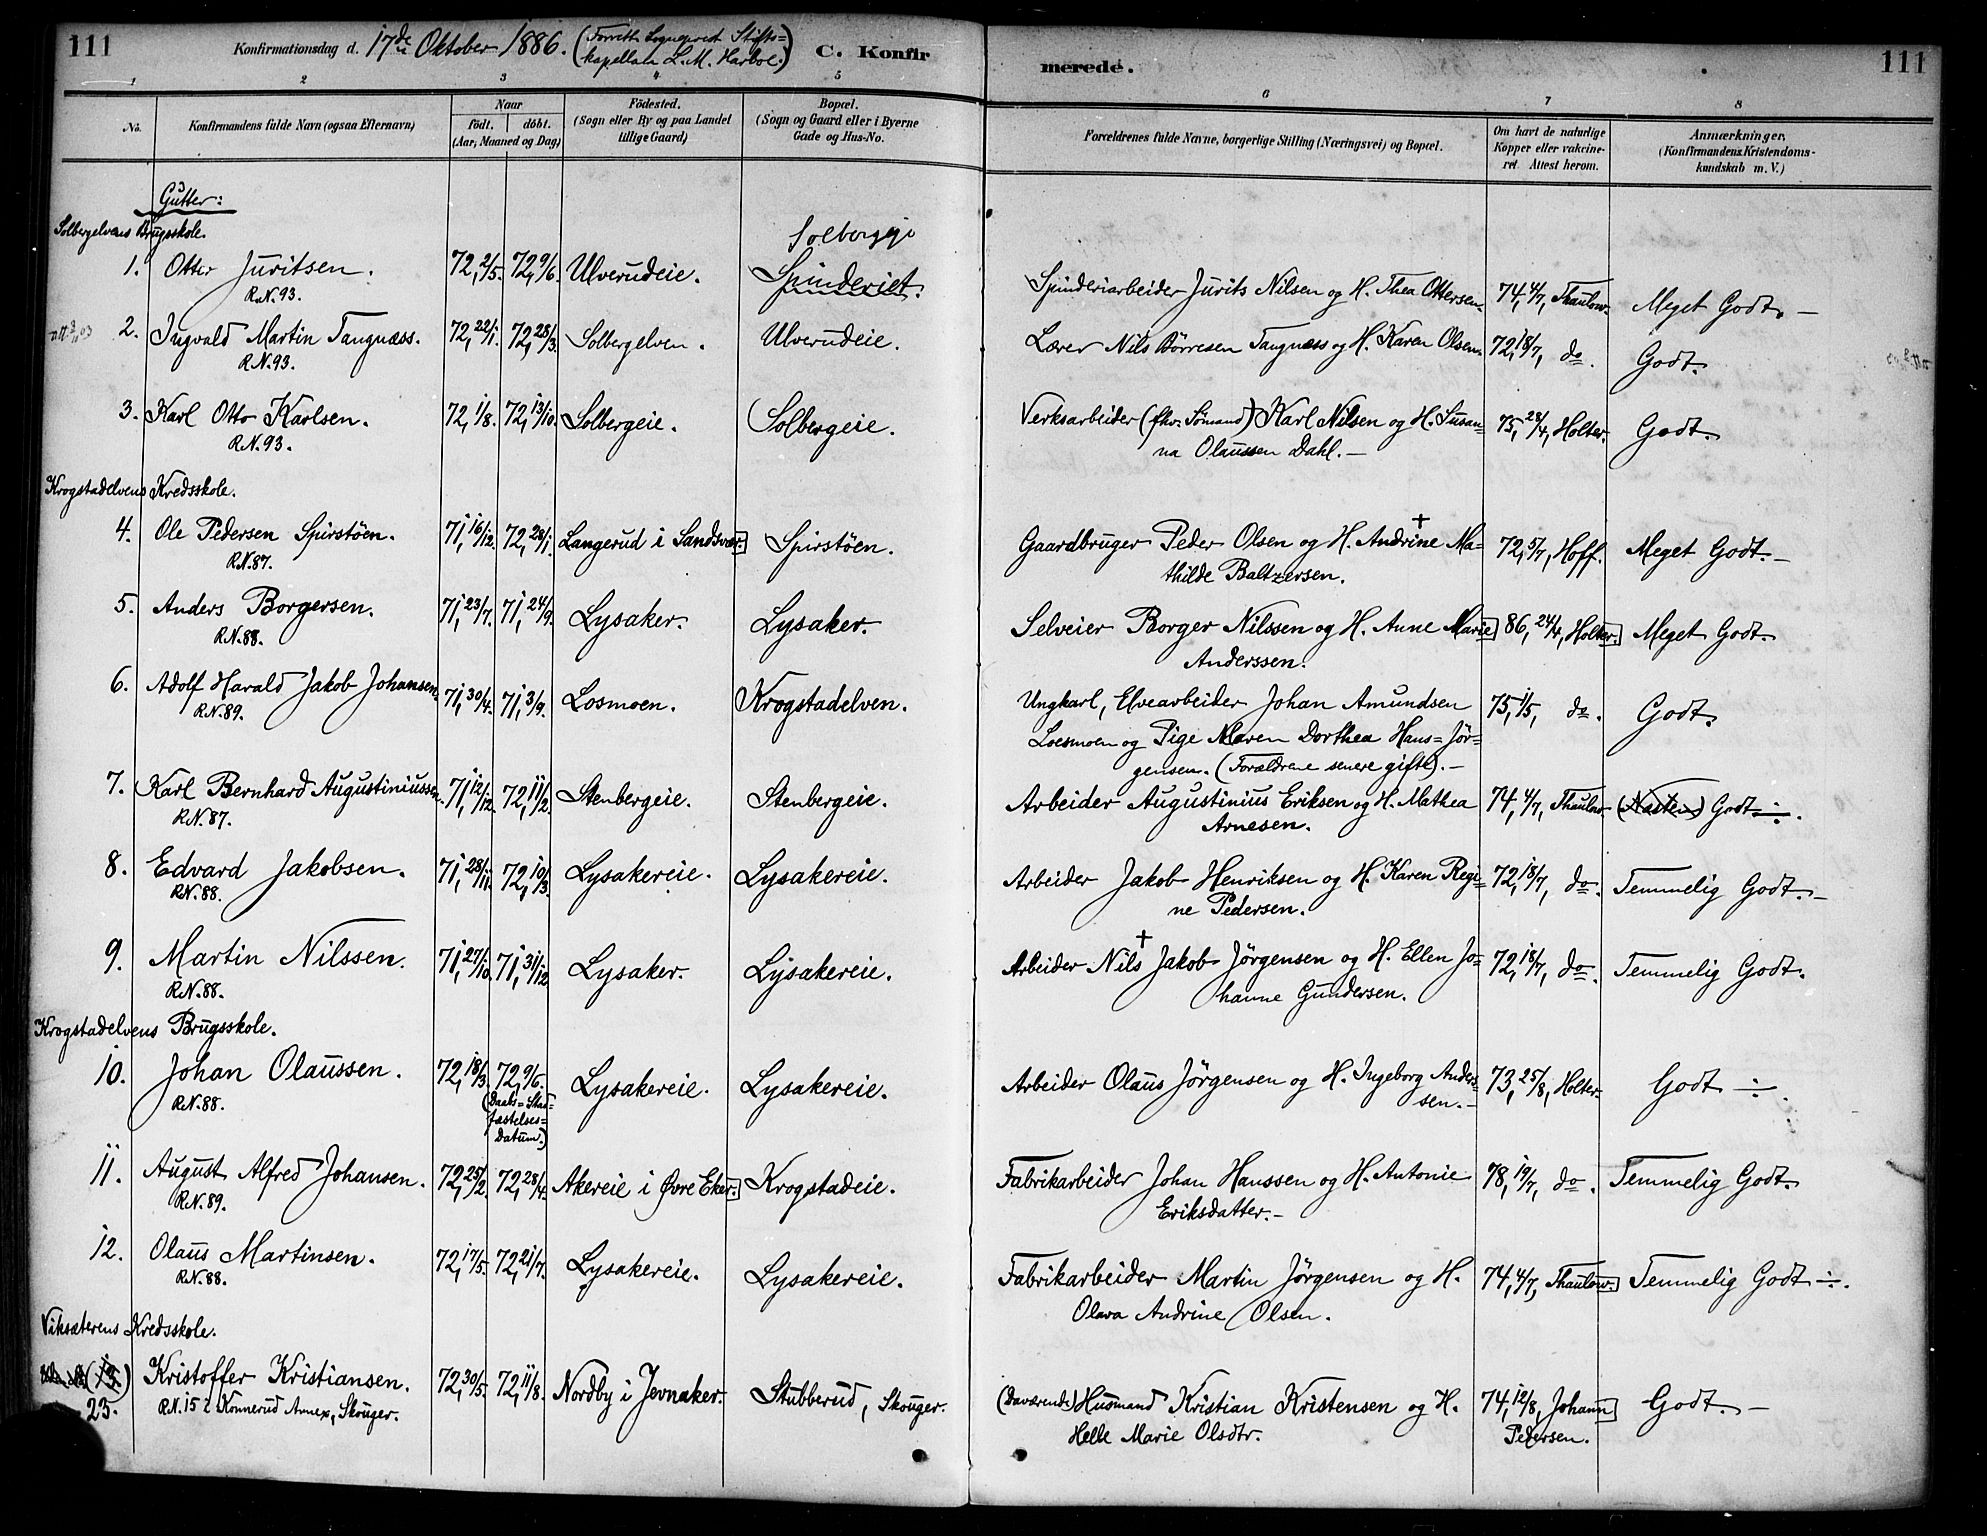 111
Konfirmationsdag d. 17de Oktober 1886. (Forrett. Sogneprest Stifts=
kapellan L. M. Harboe.)
C. Konfir
merede.
111
1 2 3 4 5 6 7 8
No.
Konfirmandens fulde Navn (ogsaa Efternavn)
Naar
födt. döbt.
(Aar, Maaned og Dag)
Födested.
(Sogn eller By og paa Landet
tillige Gaard)
Bopæl.
(Sogn og Gaard eller i Byerne
Gade og Hus-No.
Forældrenes fulde Navne, borgerlige Stilling (Næringsvei) og Bopæl.
Om havt de naturlige
Kopper eller vakcine-
ret. Attest herom.
Anmærkninger,
(Konfirmandens Kristendoms-
kundskab m. V.)
Gutter:
Solbergelvens Brugsskole.
1. Otter Juritsen. 72, 2/5. 72, 9/6. Ulverudeie. Solbergeje Spinderiet. Spinderiarbeider Jurits Nilsen og H. Thea Ottersen. 74, 4/7, Thaulow. Meget Godt. –
R.N. 93.
2. Ingvald Martin Tangnæss. 72, 22/1. 72, 28/3. Solbergelven. Ulverudeie. Lærer Nils Börresen Tangnæss og H. Karen Olsen. 72, 18/7, do. Godt.
R.N. 93.
3. Karl Otto Karlsen. 72, 1/8. 72, 13/10. Solbergeie. Solbergeie. Verksarbeider (fhv. Sömand) Karl Nilsen og H. Susan= 75, 28/4, Holter. Godt.
R.N. 93. na Olaussen Dahl. –
Krogstadelvens Kredsskole.
4. Ole Pedersen Spirstöen. 71, 16/12. 72, 28/1. Langerud i Sandsvær. Spirstöen. Gaardbruger Peder Olsen og H. Andrine † Ma= 72, 5/7, Hoff. Meget Godt. –
R.N. 87. thilde Baltzersen.
5. Anders Borgersen. 71, 23/7. 71, 24/9. Lysaker. Lysaker. Selveier Borger Nilssen og H. Anne Marie 86, 24/4, Holter. Meget Godt.
R.N. 88. Anderssen.
6. Adolf Harald Jakob Johansen. 71, 30/4. 71, 3/9. Losmoen. Krogstadelven. Ungkarl, Elvearbeider Johan Amundsen 75, 1/5, do. Godt.
R.N. 89. Loesmoen og Pige Maren Dorthea Hans=Jör=
gensen. (Forældrene senere gifte). –
7. Karl Bernhard Augustiniussen. 71, 12/12. 72, 11/2. Stenbergeie. Stenbergeie. Arbeider Augustinius Eriksen og H. Mathea 74, 4/7, Thaulow. (Næsten) Godt. ÷.
R.N. 87. Arnesen.
8. Edvard Jakobsen. 71, 28/11. 72, 10/3. Lysakereie. Lysakereie. Arbeider Jakob Henriksen og H. Karen Regi= 72, 18/7, do. Temmelig Godt. –
R.N. 88. ne Pedersen.
9. Martin Nilssen. 71, 27/10. 71, 31/12. Lysaker. Lysakereie. Arbeider Nils † Jakob Jörgensen og H. Ellen Jo= 72, 18/7, do. Temmelig Godt.
R.N. 88. hanne Gundersen.
Krogstadelvens Brugsskole.
10. Johan Olaussen. 72, 18/3. 72, 9/6. Lysakereie. Lysakereie. Arbeider Olaus Jörgensen og H. Ingeborg Anders= 73, 25/8, Holter. Godt ÷.
R.N. 88. (Daabs=Stad=
fæstelses=
Datum.) sen. –
11. August Alfred Johansen. 72, 25/2. 72, 28/4. Akereie i Øvre Eker. Krogstadeie. Fabrikarbeider Johan Hanssen og H. Antonie 78, 19/7, do. Temmelig Godt.
R.N. 89. Eriksdatter. –
12. Olaus Martinsen. 72, 17/5. 72, 21/7. Lysakereie. Lysakereie. Fabrikarbeider Martin Jörgensen og H. 74, 4/7, Thaulow. Temmelig Godt ÷.
R.N. 88. Olava Andrine Olsen.
Viksæterens Kredsskole.
(13.) Kristoffer Kristiansen. 72, 30/5. 72, 11/8. Nordby i Jevnaker. Stubberud, Skouger. (Daværende) Husmand Kristian Kristensen og H. 74, 12/8, Johann Godt. –
23. R.N. 15 i Konnerud Annex, Skouger. Helle Marie Olsdtr. Pedersen.